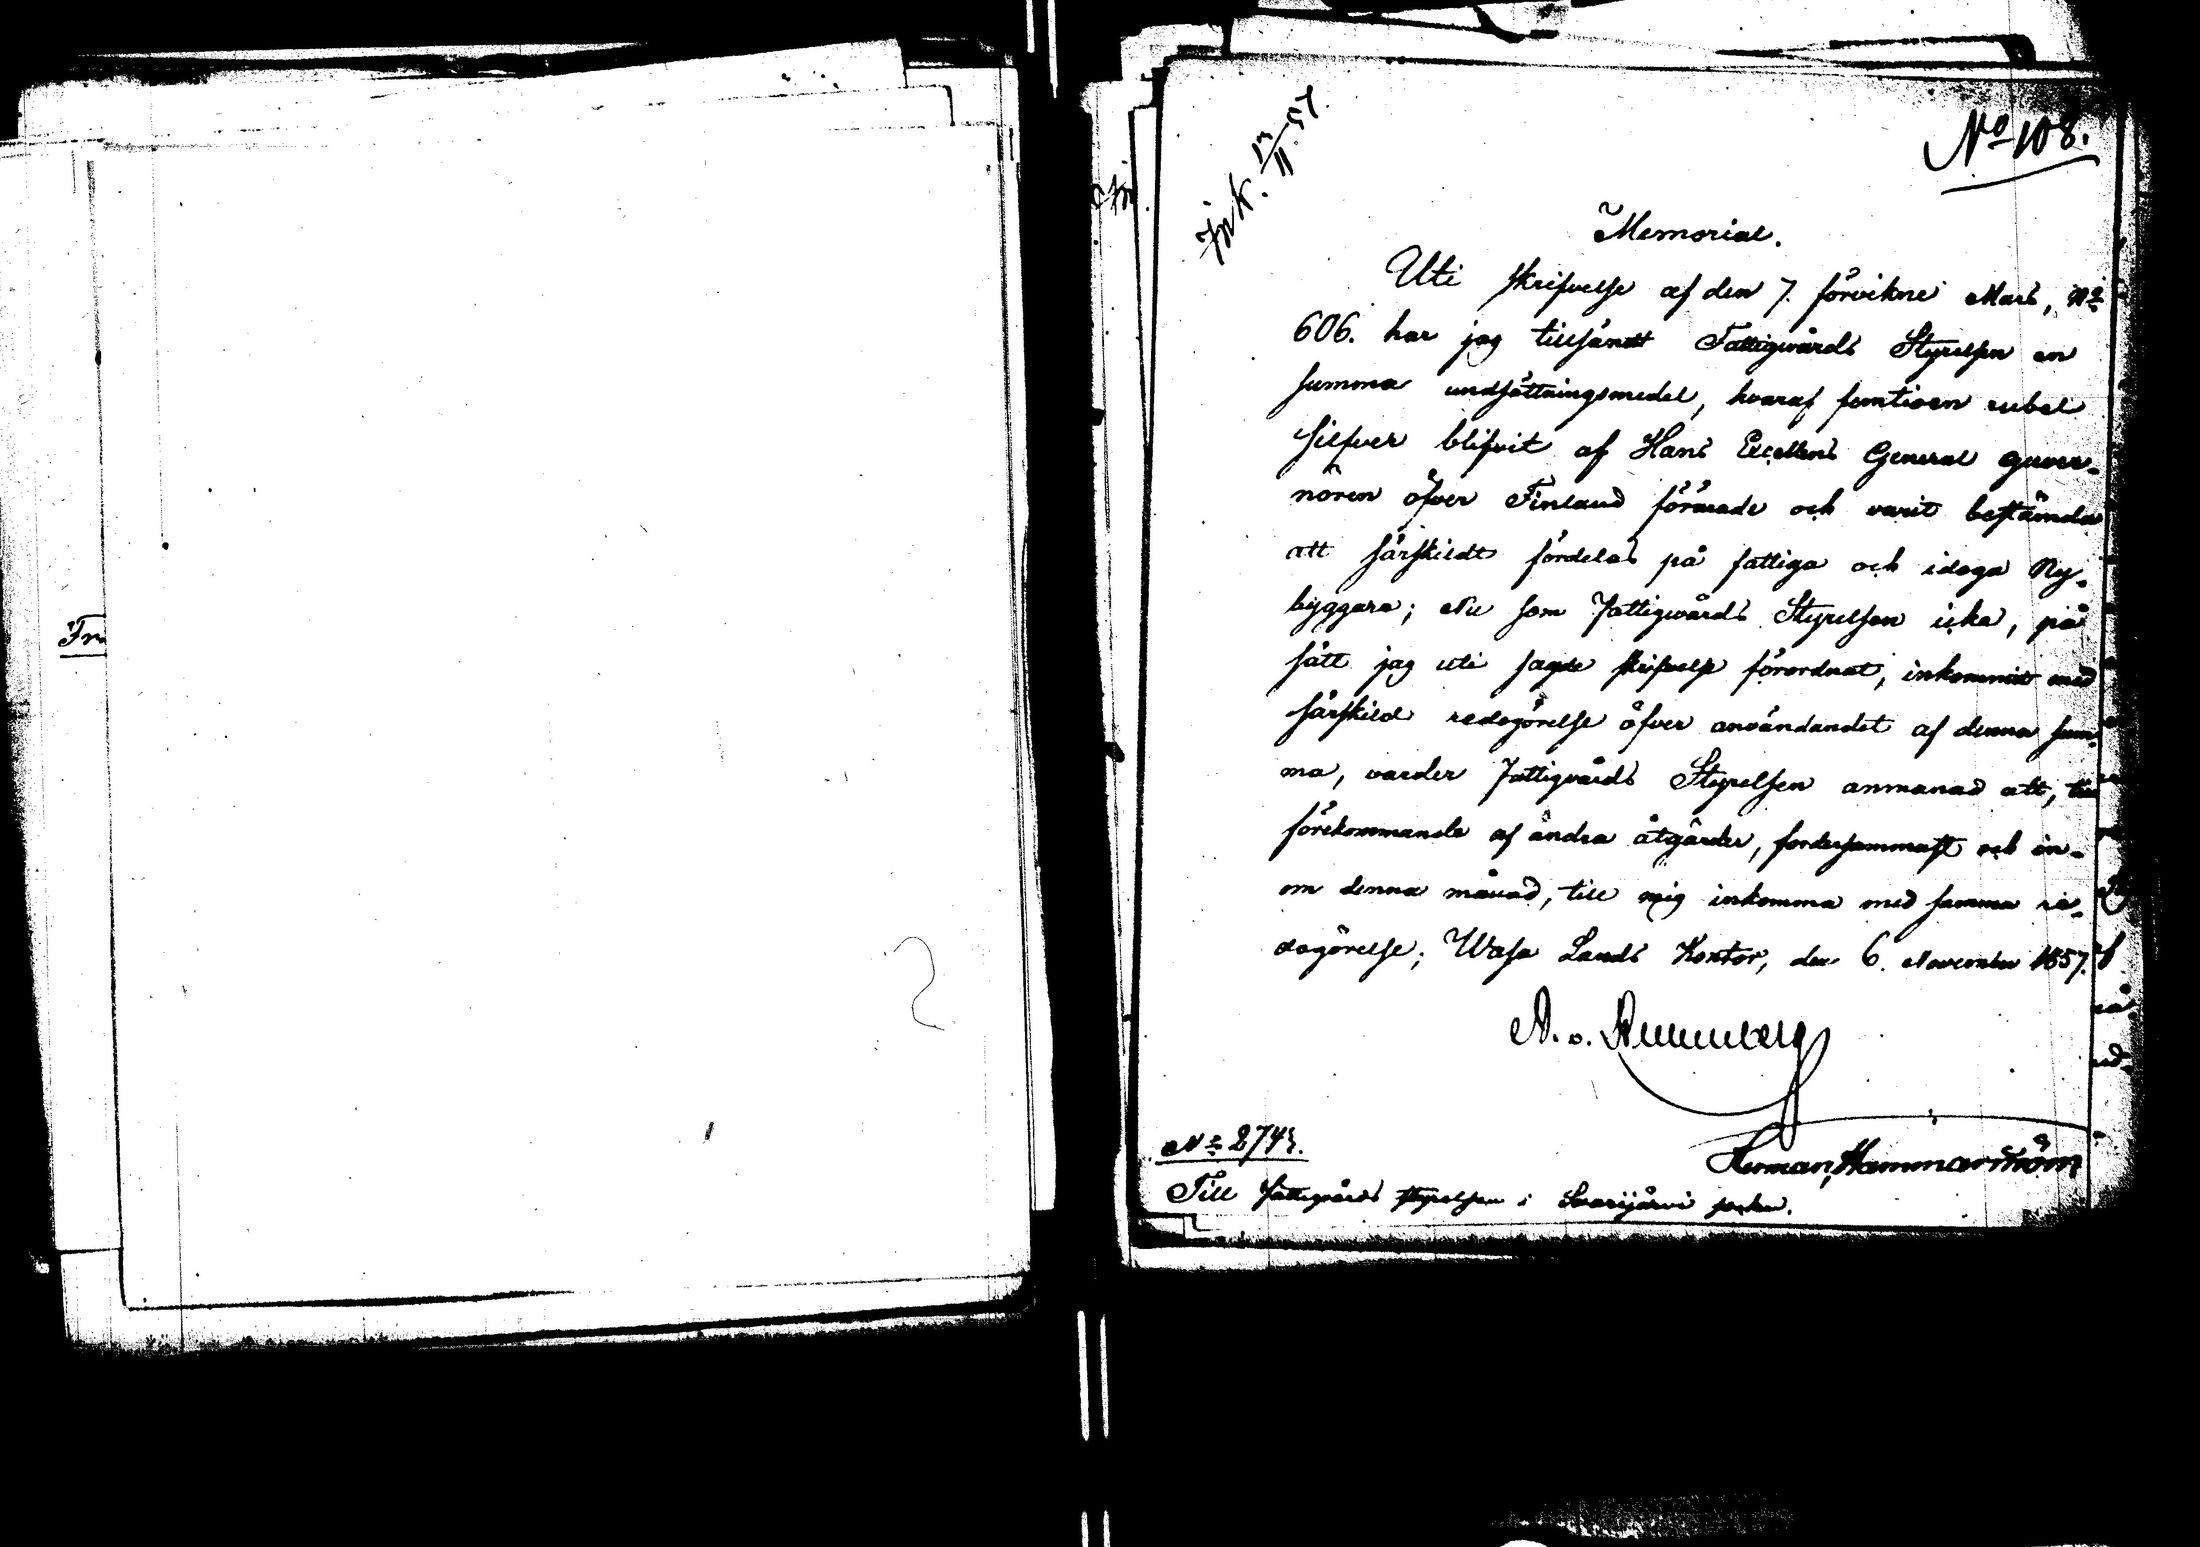 Ink. 13/11. 57.
No 108.
Memorial.
Uti skrifvelse af den 7. förvikne Mars, No
606. har jag tillsändt Fattigvårds Styrelsen en
summa undsättningsmedel, hvaraf femtioen rubel
silfver blifvit af Hans Excellens General guver-
nören öfver Finland förärade och varit bestämda
att särskildt fördelas på fattiga och idoga Ny-
byggare; Nu som Fattigvårds Styrelsen icke, på
sätt jag uti sagde skrifvelse förordnat, inkommit med
särskild redogörelse öfver användandet af denna sum-
ma, varder Fattigvårds Styrelsen anmanad att, till
förekommande af andra åtgärder, fordersammast och in-
om denna månad, till mig inkomma med samma re-
dogörelse; Wasa Lands Kontor, den 6. November 1857.
Herman Hammarström
No 2743.
Till Fattigvårds styrelsen i Saarijärvi socken.
Fr